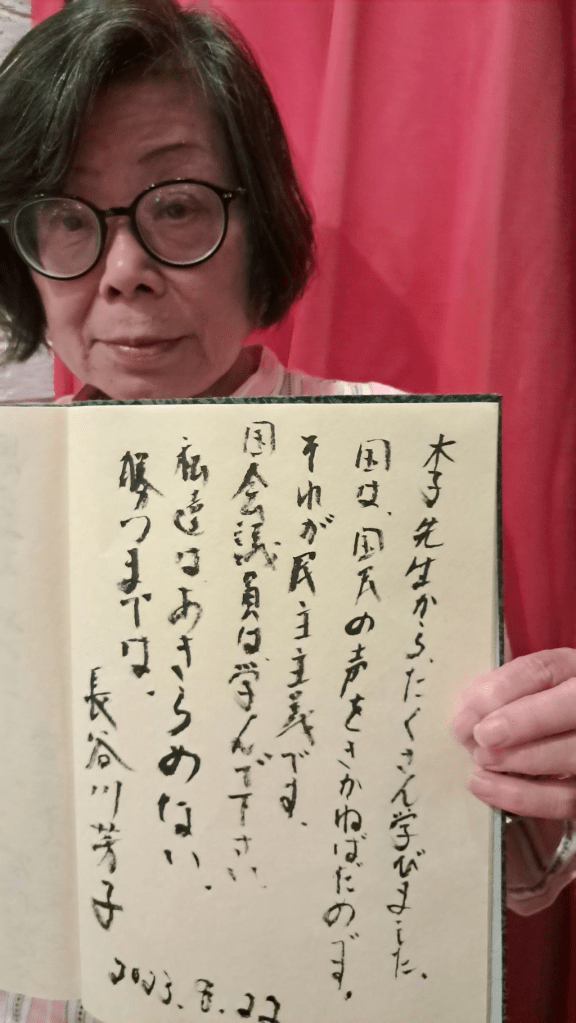 李先生から、たくさん学びました、
国は、国民の声をきかねばだめです。
それが民主主義です、
国会議員は、学んで下さい、
私達はあきらめない、
勝つまでは、
長谷川芳子
2023.8.22